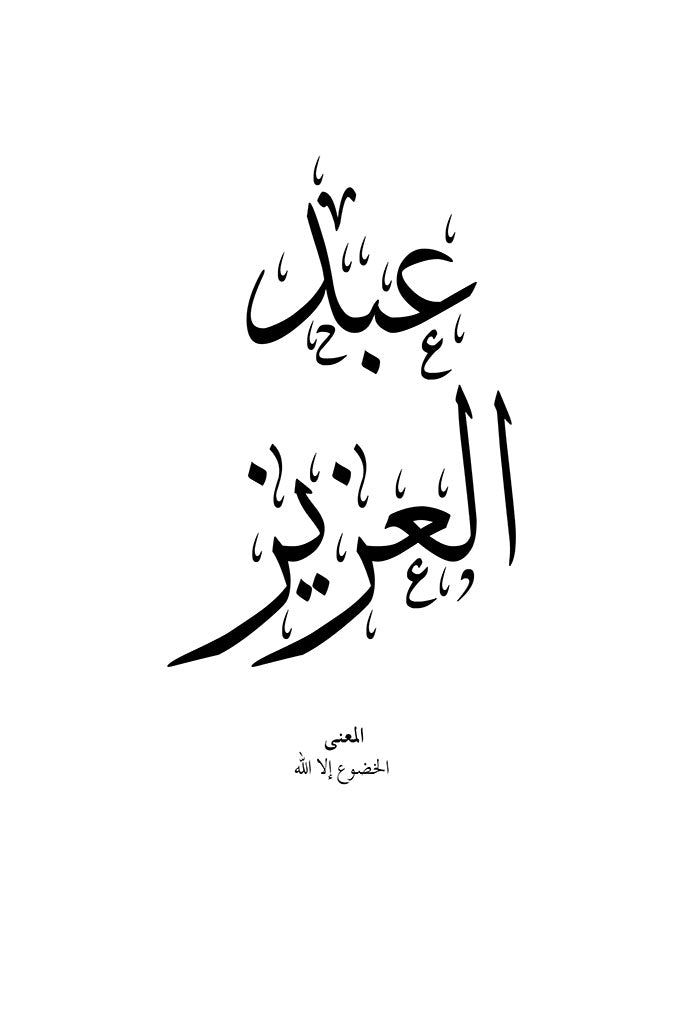 عبد
العزيز
المعنى
الخضوع إلا الله